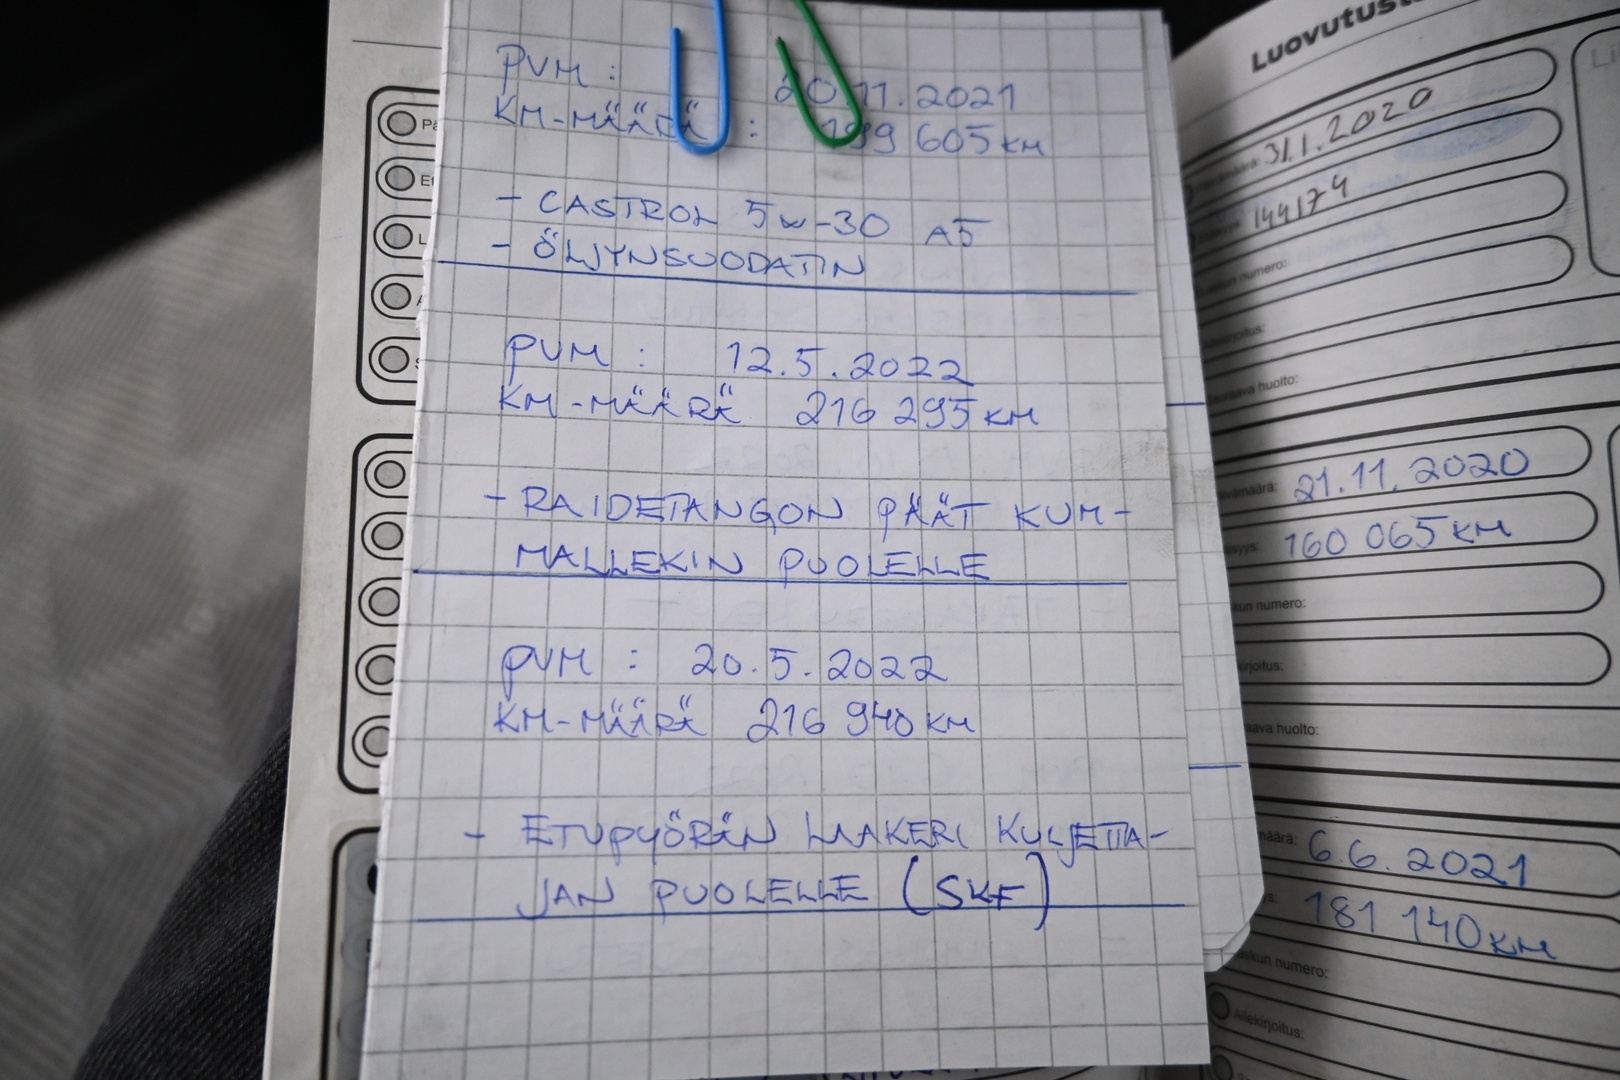 PVM : 20.11.2021
KM-MÄÄRÄ : 199 605 KM
- CASTROL 5W-30 A5
- ÖLJYNSUODATIN
PVM : 12.5.2022
KM-MÄÄRÄ 216 295 KM
- RAIDETANGON PÄÄT KUM-
MALLEKIN PUOLELLE
PVM : 20.5.2022
KM-MÄÄRÄ 216 940 KM
- ETUPYÖRÄN LAAKERI KULJETTA-
JAN PUOLELLE (SKF)
31.1.2020
144174
numero:
huolto:
21.11.2020
160 065 KM
numero:
huolto:
6.6.2021
181 140 KM
numero:
Allekirjoitus: